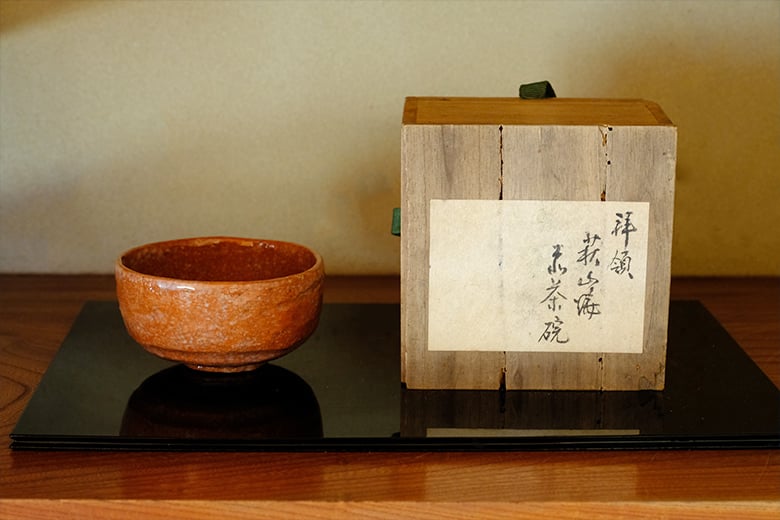 拝領
萩山焼
赤茶碗